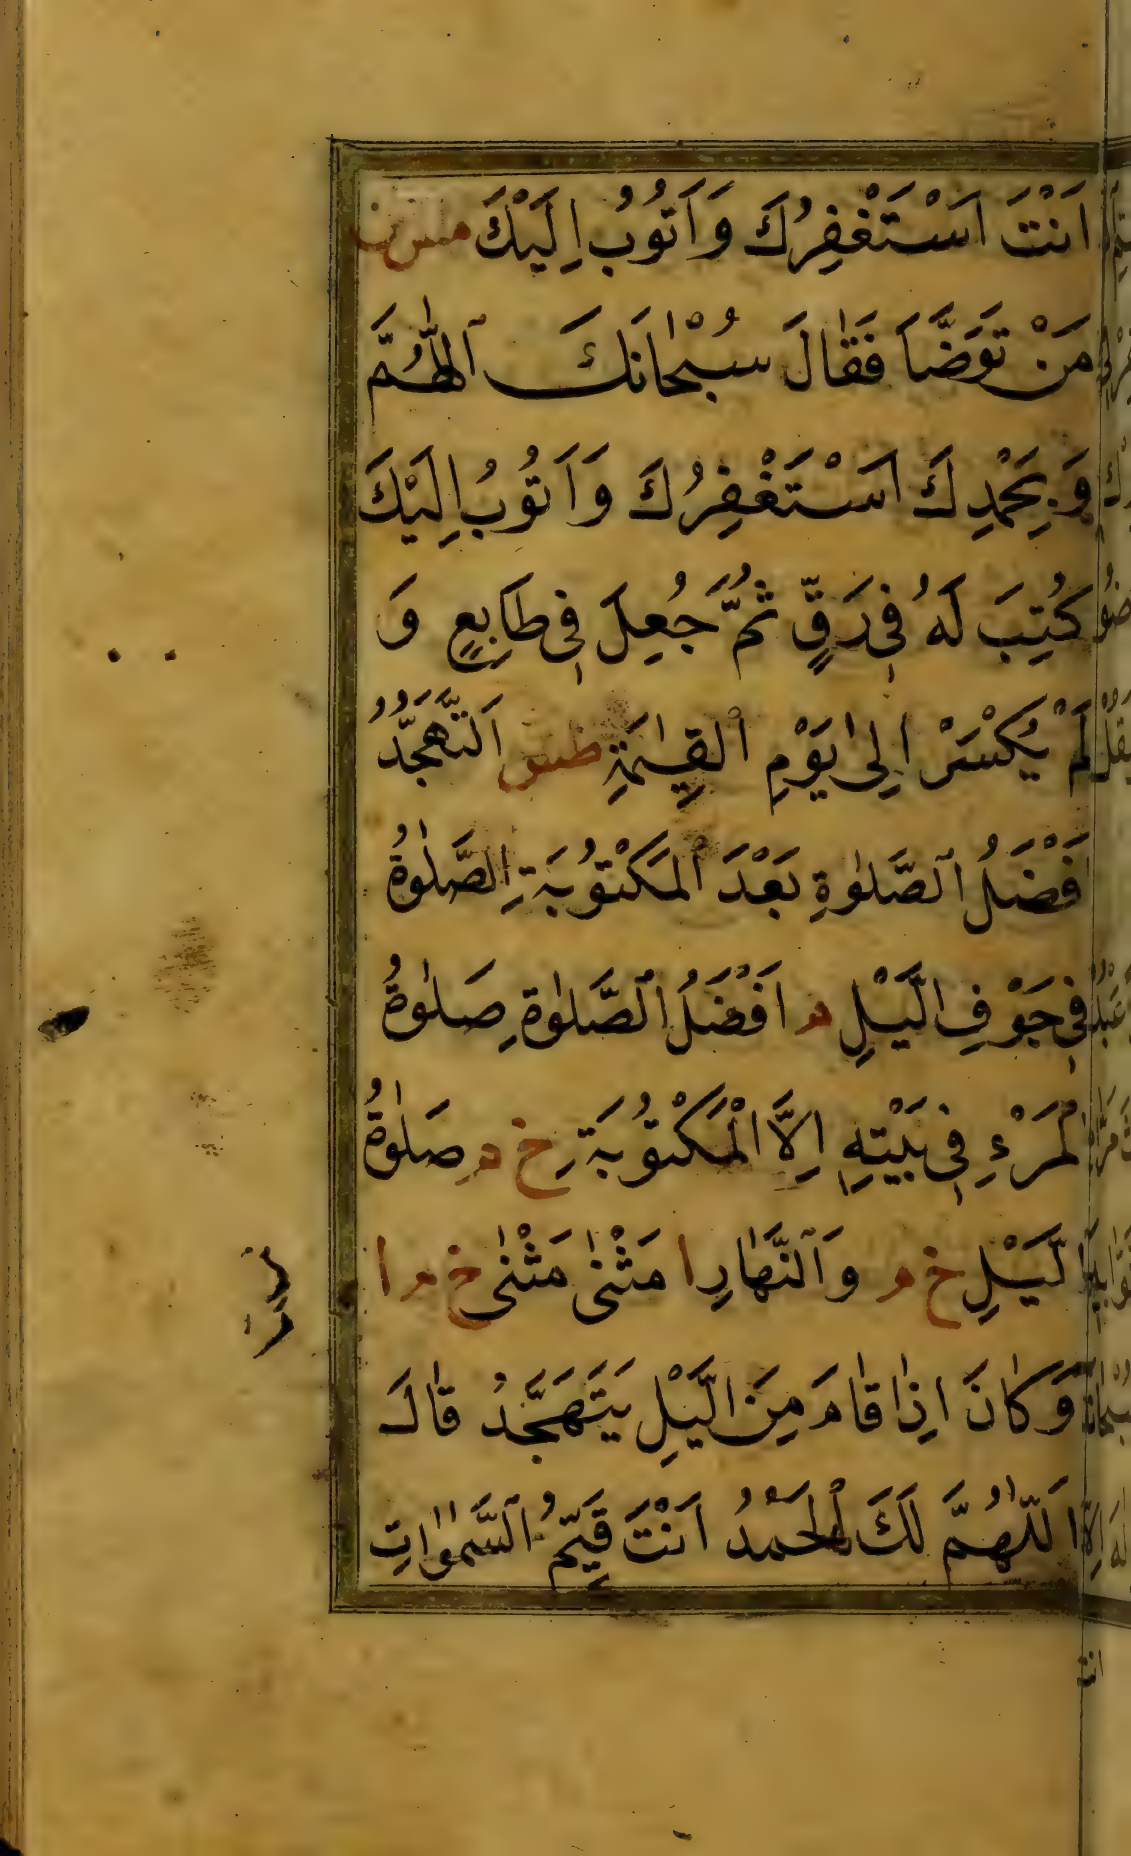 اَنْتَ اَسْتَغْفِرُكَ وَاَتُوبُ اِلَيْكَ مس
مَنْ تَوَضَّاَ فَقَالَ سُبْحَانَكَ اَللّٰهُمَّ
وَبِحَمْدِكَ اَسْتَغْفِرُكَ وَاَتُوبُ اِلَيْكَ
كُتِبَ لَهُ فِي رَقٍّ ثُمَّ جُعِلَ فِي طَابِعٍ وَ
لَمْ يُكْسَرْ اِلٰى يَوْمِ الْقِيٰمَةِ طس اَلتَّهَجُّدُ
اَفْضَلُ الصَّلٰوةِ بَعْدَ الْمَكْتُوبَةِ الصَّلٰوةُ
فِي جَوْفِ الَّيْلِ م اَفْضَلُ الصَّلٰوةِ صَلٰوةُ
الْمَرْءِ فِي بَيْتِهِ اِلَّا الْمَكْتُوبَةَ خ م صَلٰوةُ
الَّيْلِ خ م وَالنَّهَارِ ا مَثْنٰى مَثْنٰى خ م ا
وَكَانَ اِذَا قَامَ مِنَ الَّيْلِ يَتَهَجَّدُ قَالَ
اَللّٰهُمَّ لَكَ الْحَمْدُ اَنْتَ قَيِّمُ السَّمٰوَاتِ
انت